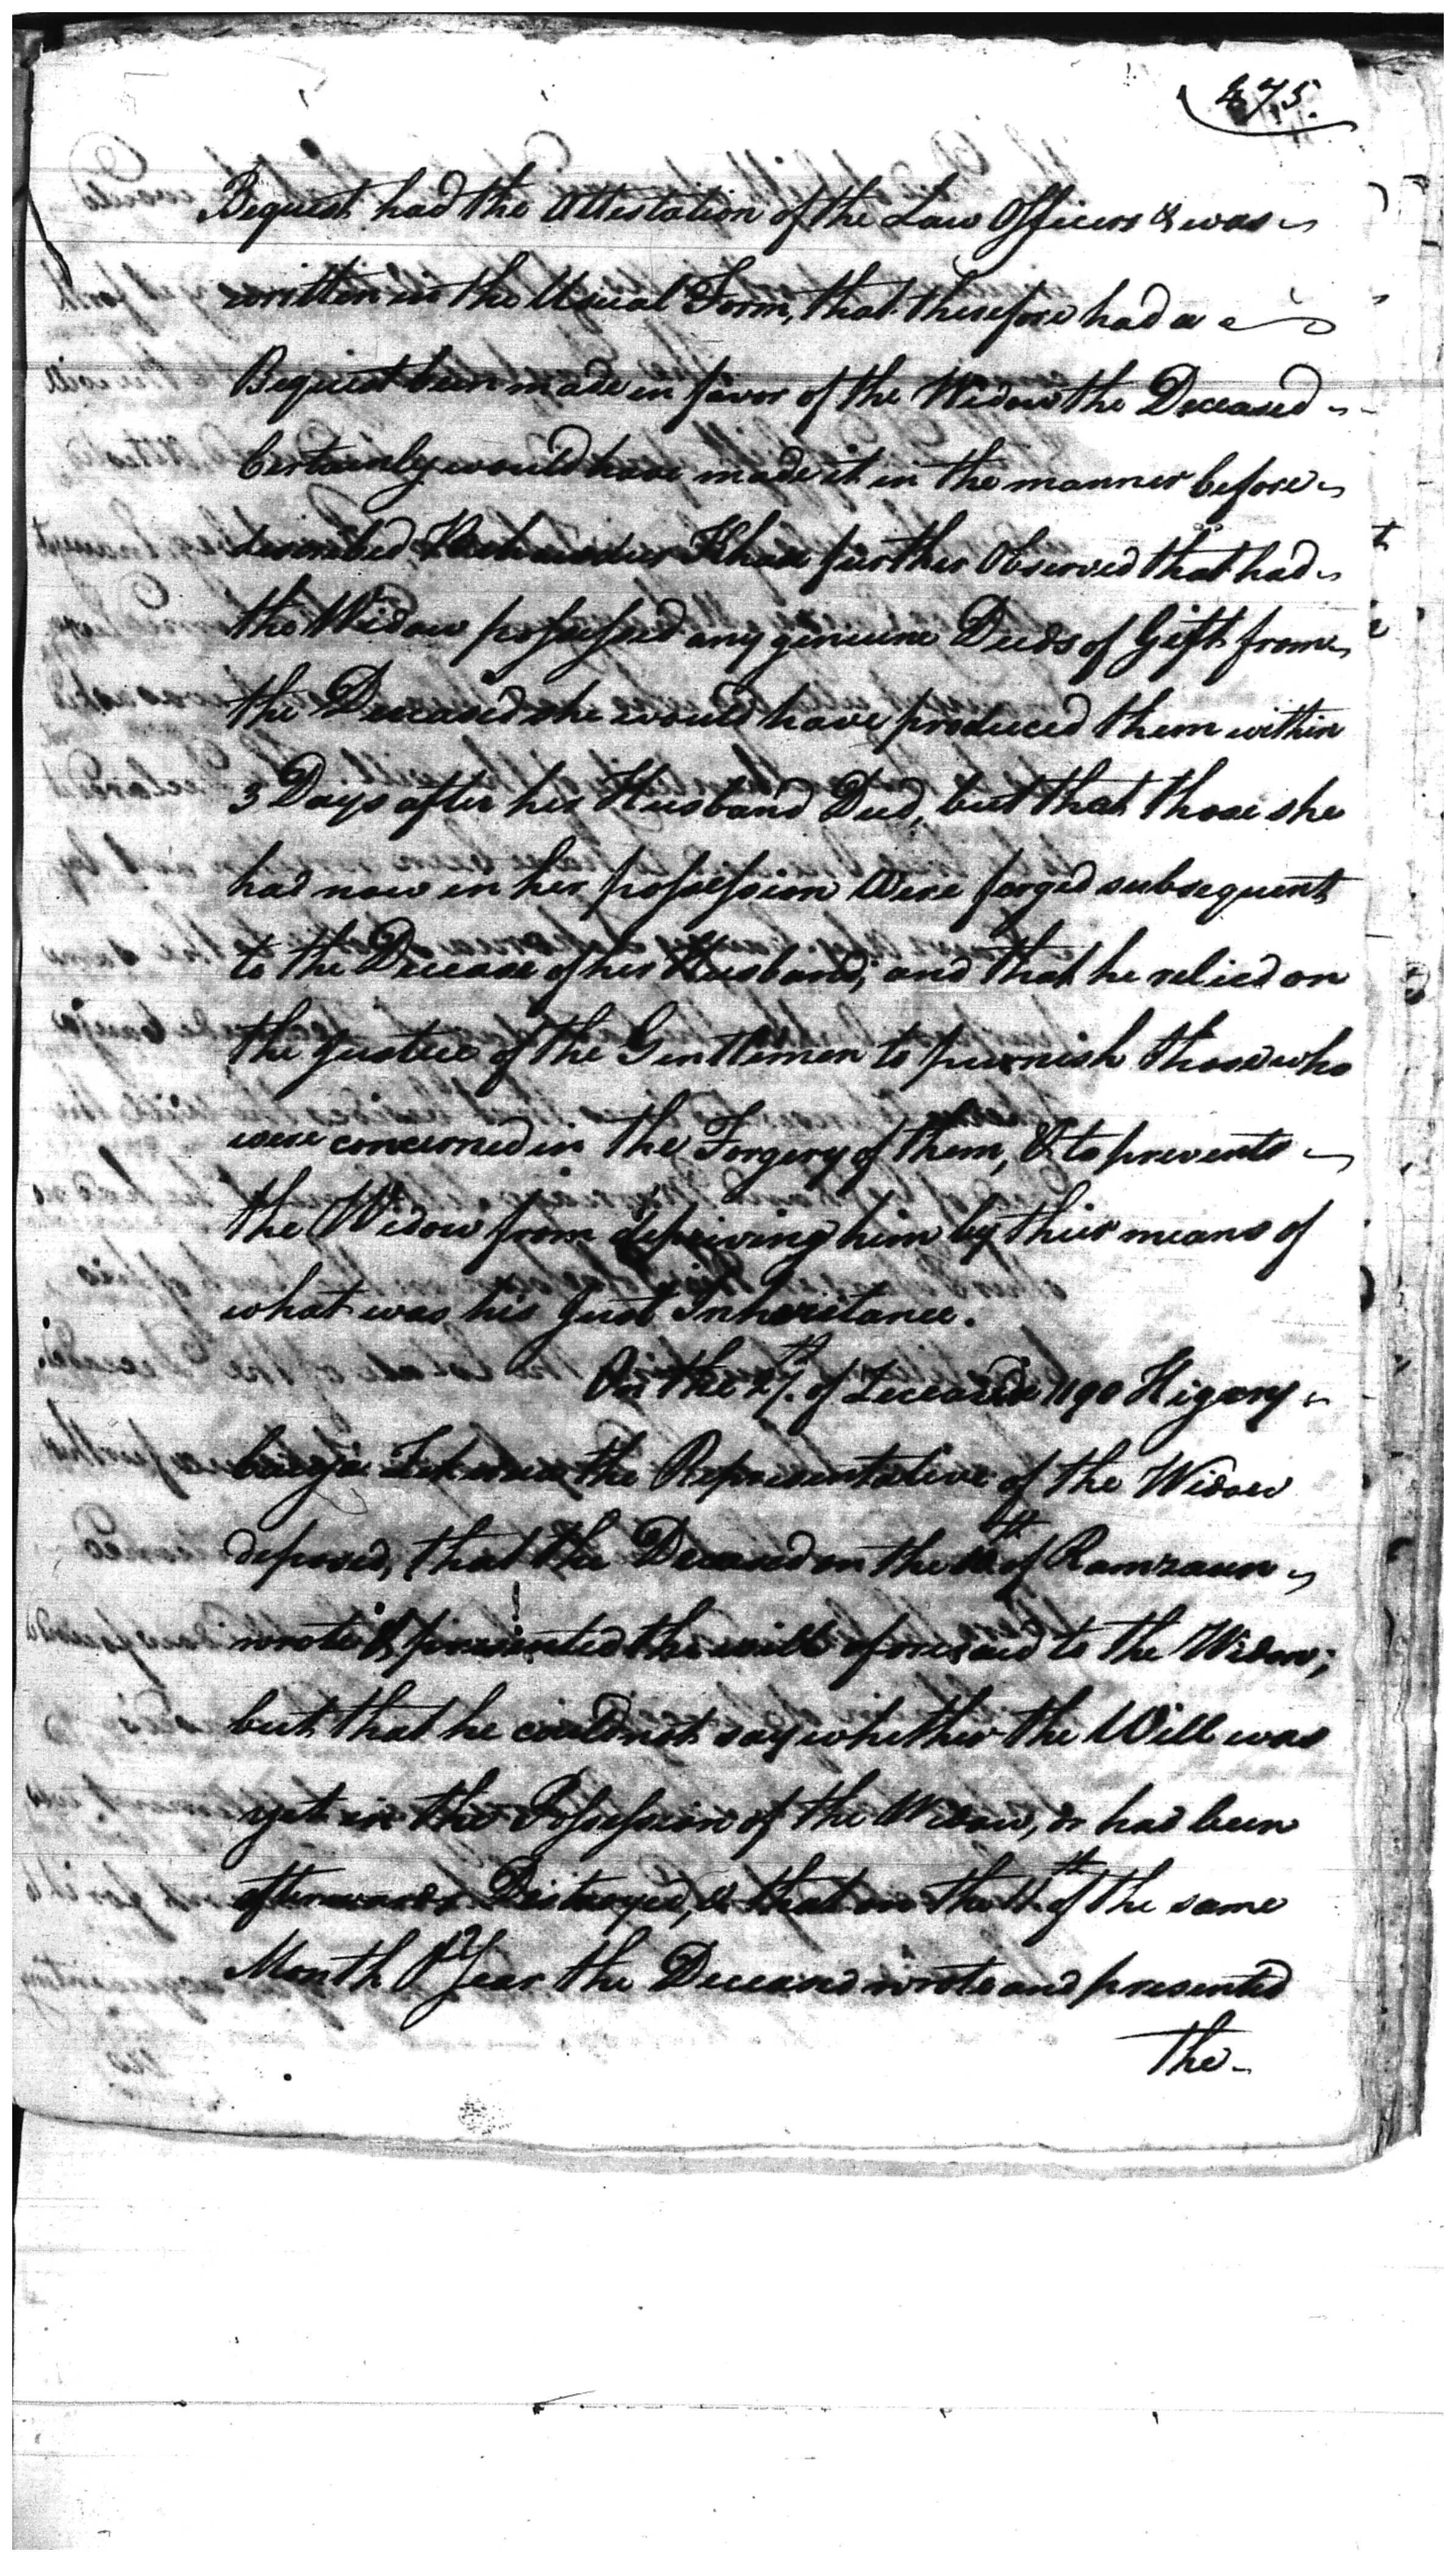 475.
Bequest had the Attestation of the Law Officers & was
written in the Usual Form, that therefore had a
Bequest been made in favor of the Widow the Deceased
Certainly would have made it in the manner before
described, Khan further Observed that had
the Widow possessed any genuine Deeds of Gift from
the Deceased she would have produced them within
3 Days after her Husband Died, but that those she
had now in her possession Were forged subsequent
to the Decease of her Husband, and that he relied on
the Justice of the Gentlemen to purnish those who
were concerned in the Forgery of them, & to prevent
the Widow from depriving him by their means of
what was his Just Inheritance.
On the 27th. of 1190 Higery
the Representative of the Widow
deposed, that the Deceased on the of Ramzaun
wrote & presented the will aforesaid to the Widow;
but that he could not say whether the Will was
yet in the Possession of the Widow, or had been
afterwards Destroyed, & that on the 11th. of the same
Month & Year the Deceased wrote and presented
the